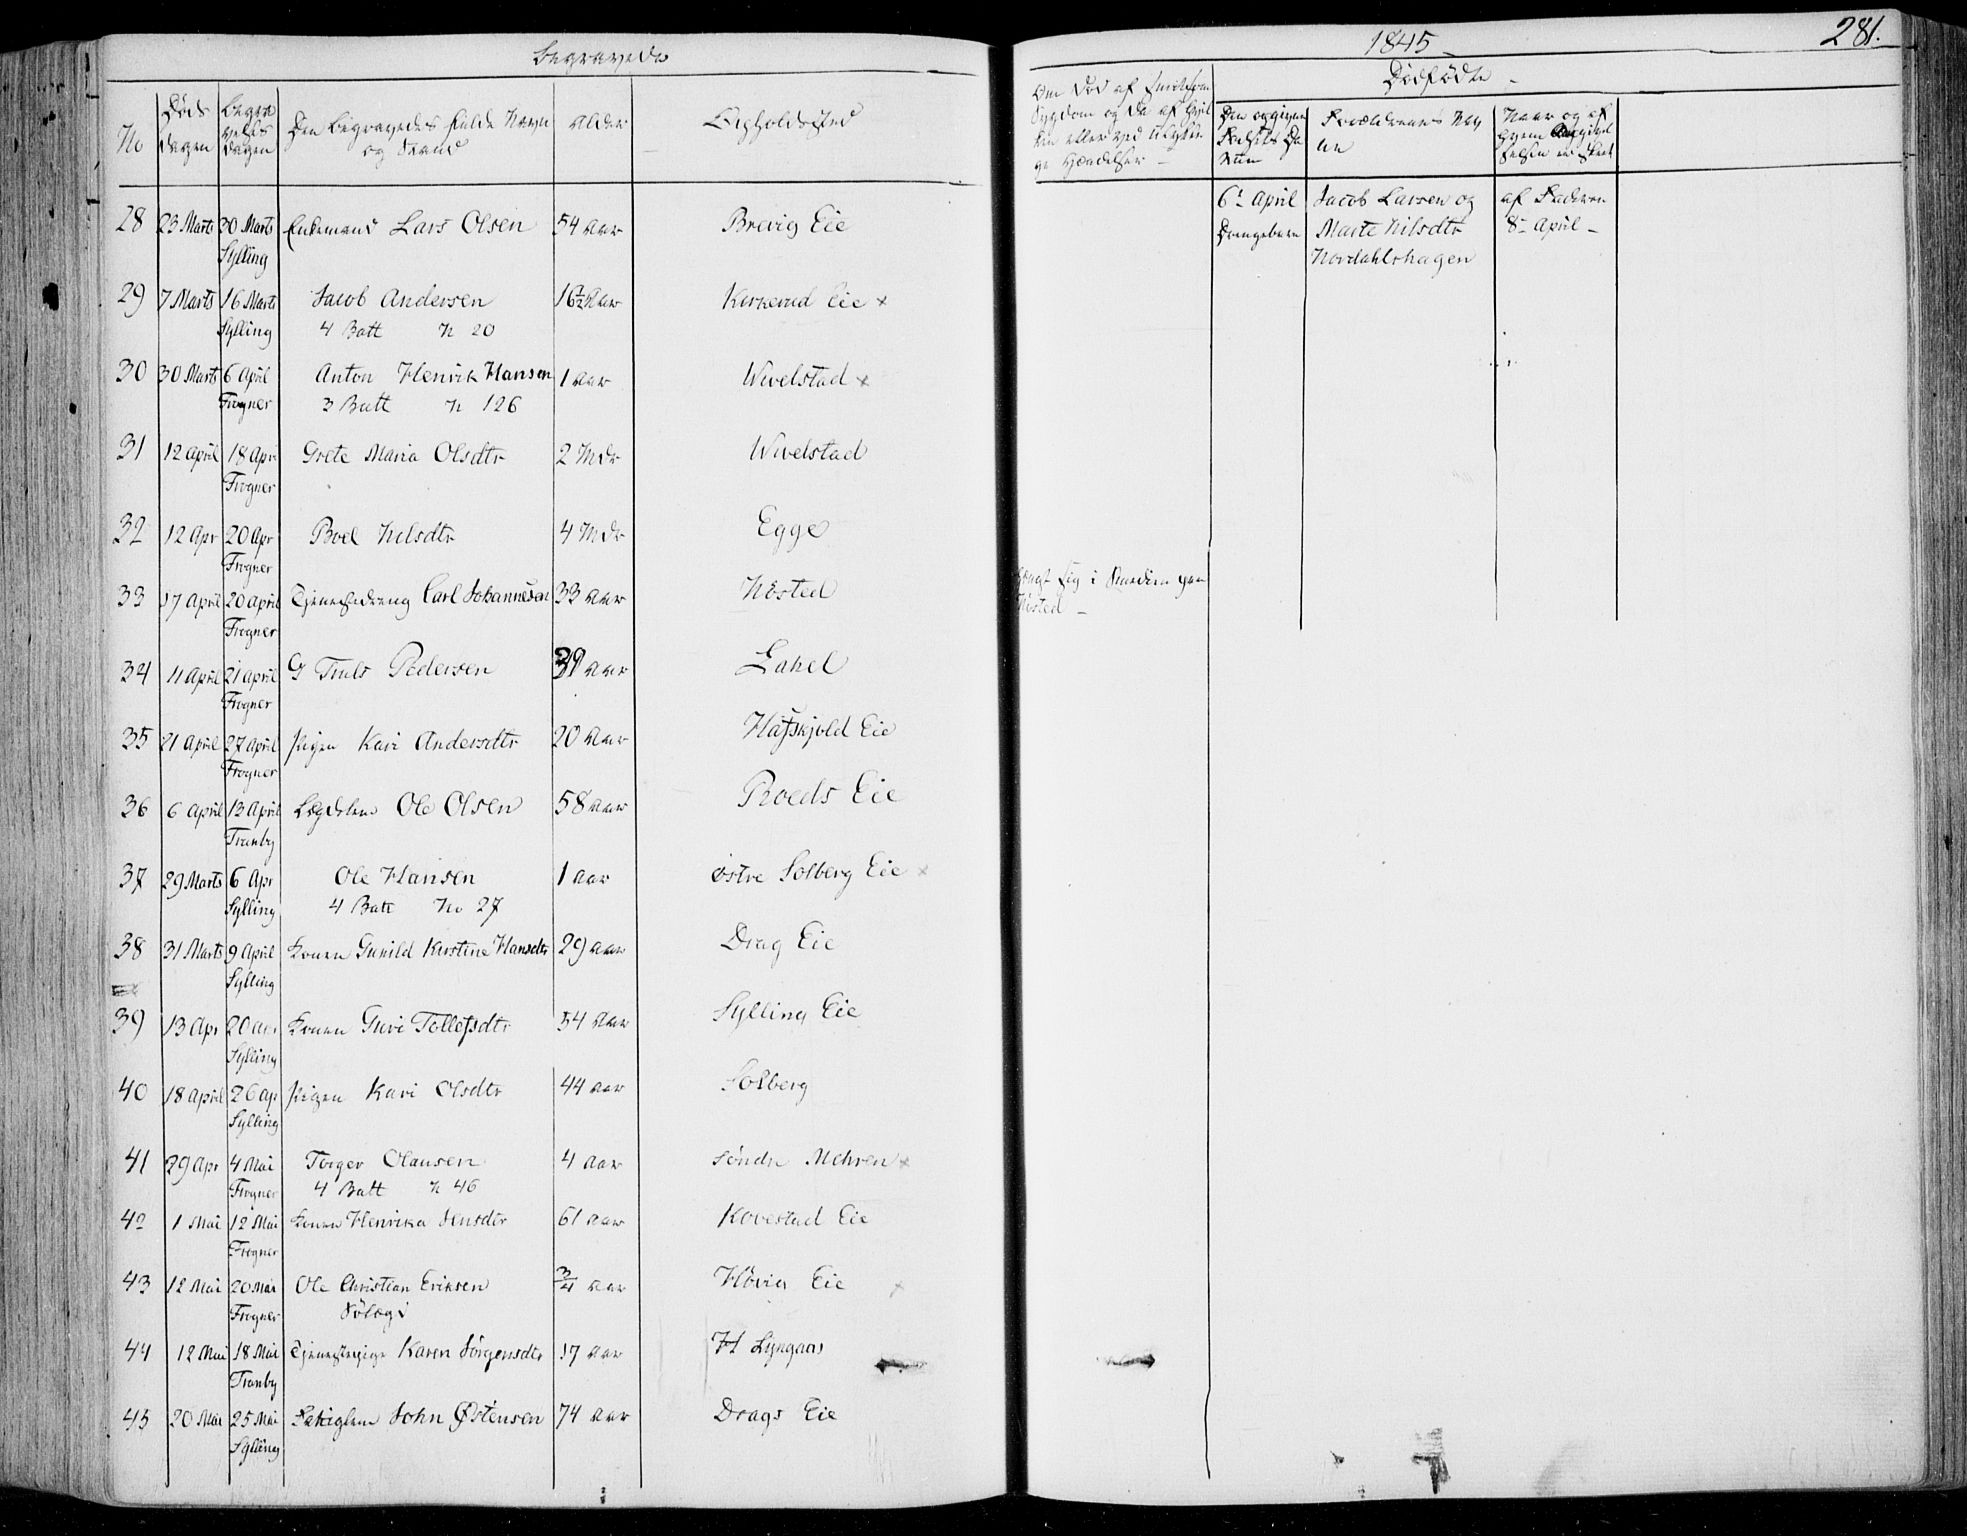 Begravede
No
Døds dagen
Begra velses dagen
Den Begravedes fulde Navn og Stand
Alder
Opholdssted
28 23 Marts 30 Marts Enkemand Lars Olsen 54 Aar Brevig Eie
Sylling
29 7 Marts 16 Marts Jacob Andersen 16½ Aar Kirkerud Eie x
Sylling 4 Batt N 20
30 30 Marts 6 April Anton Henrik Hansen 1 Aar Wivelstad x
Frogner 3 Batt N 126
31 12 April 18 Apr Grete Maria Olsdtr 2 Mdr Wivelstad
Frogner
32 12 Apr 20 Apr Boel Nilsdtr 4 Mdr Egge
Frogner
33 17 April 20 April Tjenestedreng Carl Johannesen 33 Aar Nøsted
Frogner
34 11 April 21 April G Truls Pedersen Aar Lahel
Frogner
35 21 April 27 April Pigen Kari Andersdtr 20 Aar Hafskjold Eie
Frogner
36 6 April 13 April Lægdslem Ole Olsen 58 Aar Roeds Eie
Tranby
37 29 Marts 6 Apr Ole Hansen 1 Aar østre Solberg Eie x
Sylling 4 Batt No 27
38 31 Marts 9 April Konen Gunild Kirstine Hansdtr 29 Aar Drag Eie
Sylling
39 13 Apr 20 Apr Konen Guri Tollefsdtr 54 Aar Sylling Eie
Sylling
40 18 April 26 Ap Pigen Kari Olsdtr 44 Aar Solberg
Sylling
41 29 Apr 4 Mai Torger Olausen 4 Aar Søndre Mehren x
Frogner 4 Batt N 46
42 1 Mai 12 Mai Konen Henrika Jensdtr 61 Aar Kovestad Eie
Frogner
43 12 Mai 20 Mai Ole Christian Eriksen 3/4 Aar Høvig Eie x
Frogner
44 12 Mai 18 Mai Tjenestepige Karen Jørgensdtr 17 Aar H Lyngaas
Tranby
45 20 Mai 25 Mai John Østensen 74 Aar Drags Eie
Sylling
1845
281.
Dødfødte
Om Død af Smitsom
Sygdom og da af hvil
ken eller ved ulykke
ge Hændelser
Den opgivne
Fødsels Da
tum
Forældrenes Nav
ne
Naar og af
hvem Angivel
selsen er skeet
6te April Jacob Larsen og af Faderen
Drengebarn Marte Nilsdtr 8de April
Nordahlshagen
sig i
Nøsted